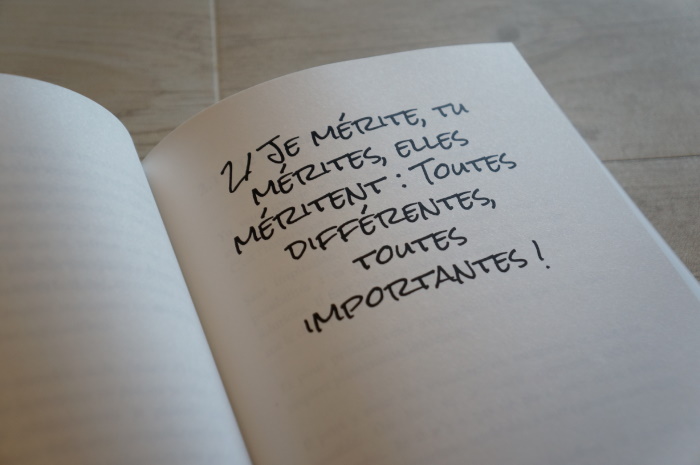 2/ JE MÉRITE, TU
MÉRITES, ELLES
MÉRITENT : TOUTES
DIFFÉRENTES,
TOUTES
IMPORTANTES !